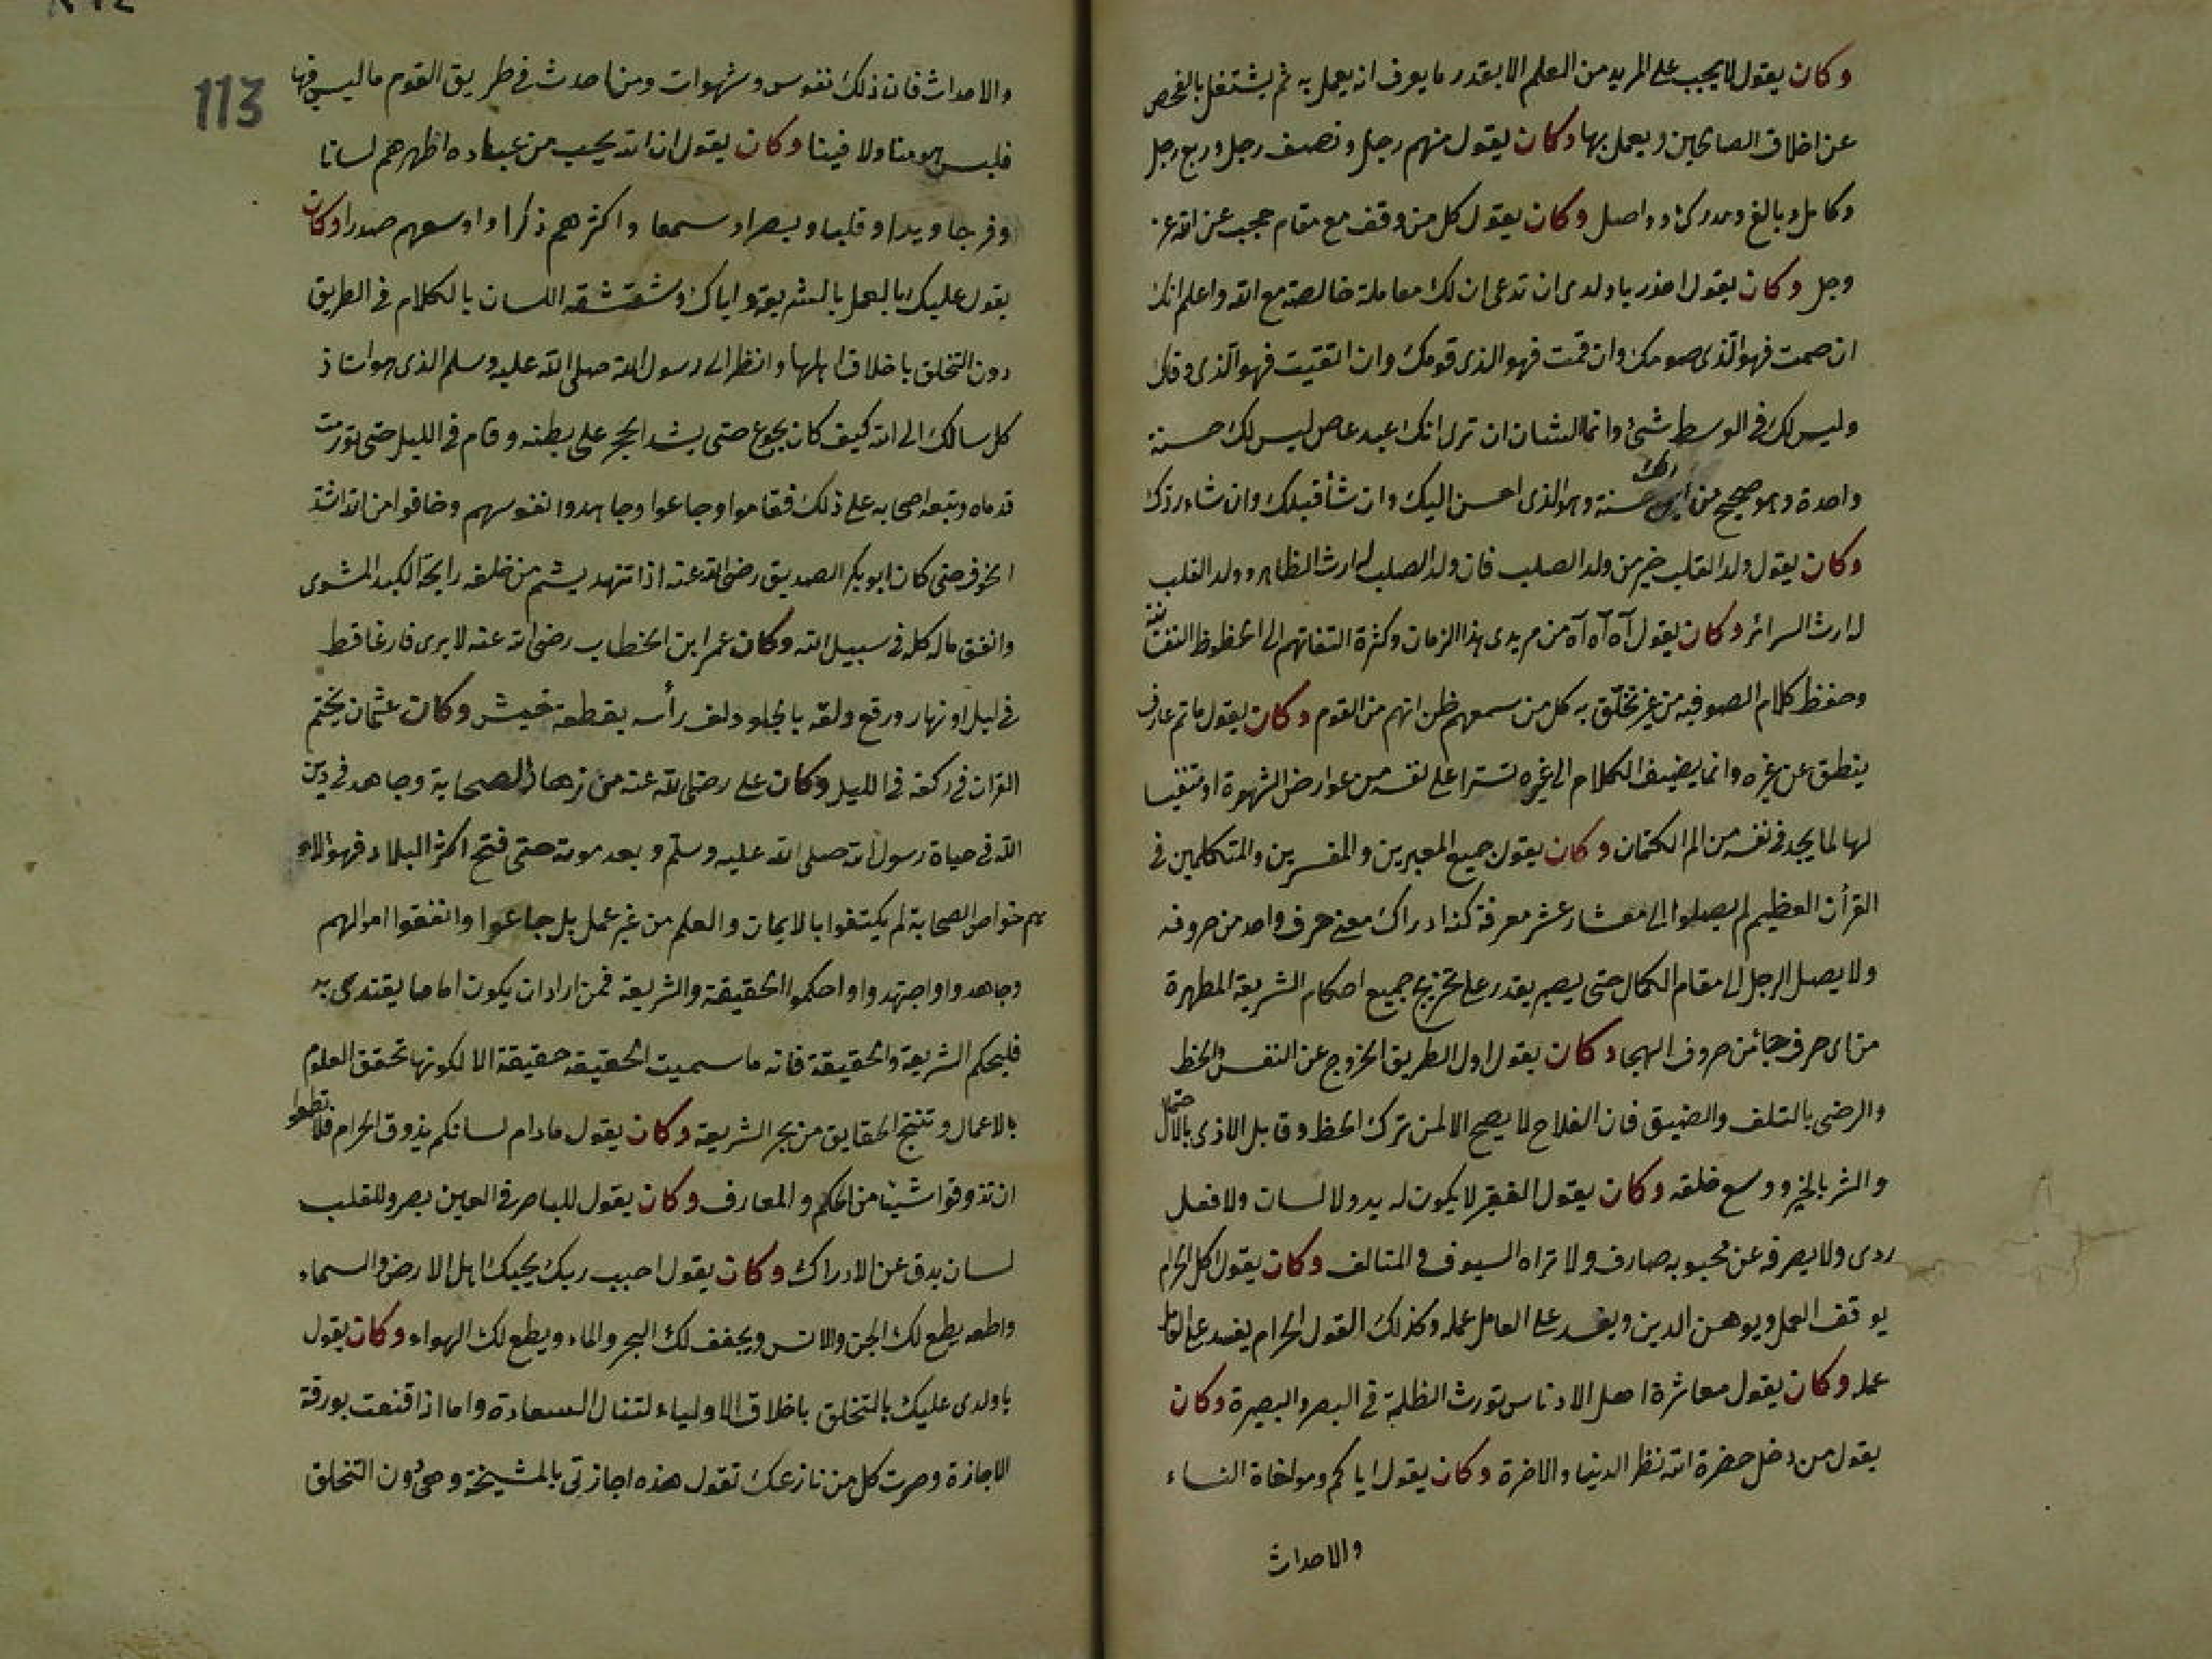 وكان يقول لا يجب على المريد من العلم الا بقدر ما يعرف انه يعمل به ثم يشتغل بالفحص
عن اخلاق الصالحين ويعمل بها وكان يقول منهم رجل ونصف رجل وربع رجل
وكامل وبالغ ومدرك وواصل وكان يقول كل من وقف مع مقام حجب عن الله عز
وجل وكان يقول احذر يا ولدى ان تدعى ان لك معاملة خالصة مع الله واعلم انك
ان صمت فهو الذى صومك وان قمت فهو الذى قومك وان اتقيت فهو الذى وقاك
وليس لك فى الوسط شئ وانما الشان ان ترى انك عبد عاص ليس لك حسنة
واحدة وهو صحيح من اين لك حسنة وهو الذى احسن اليك وان شأ قبلك وان شاء ردك
وكان يقول ولد القلب خير من ولد الصلب فان ولد الصلب له ارث الظاهر وولد القلب
له ارث السرائر وكان يقول آه آه آه من مريدى هذا الزمان وكثرة التفاتهم الى الحظوظ النفسانية
وحفظ كلام الصوفية من غير تخلّق به كل من سمعهم ظن انهم من القوم وكان يقول ما تم عارف
ينطق عن غيره وانما يضيف الكلام الى غيره تسترا على نفسه من عوارض الشهوة او تنفيسا
لها لما يجد فى نفسه من الم الكتمان وكان يقول جميع المعبرين والمفسرين والمتكلمين فى
القرأن العظيم لم يصلوا الى معشار عشر معرفة كنه ادراك معنى حرف واحد من حروفه
ولا يصل الرجل الى مقام الكمال حتى يصير يقدر على تخريج جميع احكام الشريعة المطهرة
من اى حرف جأ من حروف الهجا وكان يقول اول الطريق الخروج عن النفس والحظ
والرضى بالتلف والضيق فان الفلاح لا يصح الا لمن ترك الحظ وقابل الاذى بالاحتمال
والشر بالخير ووسع خلقه وكان يقول الفقير لا يكون له يد ولا لسان ولا فعل
ردى ولا يصرفه عن محبوبه صارف ولا تراه السيوف والمتالف وكان يقول اكل الحرام
يوقف العمل ويوهن الدين ويفسد على العامل عمله وكذلك القول الحرام يفسد على العامل
عمله وكان يقول معاشرة اهل الادناس تورث الظلمة فى البصر والبصيرة وكان
يقول من دخل حضرة الله نظر الدنيا والاخرة وكان يقول اياكم ومواخاة النساء
والاحداث
113
والاحداث فان ذلك نفوس وشهوات ومن احدث فى طريق القوم ما ليس فيها
فليس هو منا ولا فينا وكان يقول ان الله يحب من عباده اظهرهم لسانا
وفرجا ويدا وقلبا وبصرا وسمعا واكثرهم ذكرا واوسعهم صدرا وكان
يقول عليك بالعمل بالشريعة واياك وشقشقة اللسان بالكلام فى الطريق
دون التخلق باخلاق اهلها وانظر الى رسول الله صلى الله عليه وسلم الذى هو استاذ
كل سالك الى الله كيف كان يجوع حتى يشد الحجر على بطنه وقام فى الليل حتى تورمت
قدماه وتبعه اصحابه على ذلك فقاموا وجاعوا وجاهدوا نفوسهم وخافوا من الله اشد
الخوف حتى كان ابو بكر الصديق رضى الله عنه اذا تنهد يشم من خلقه رايحة الكبد المشوى
وانفق ماله كله فى سبيل الله وكان عمر ابن الخطاب رضى الله عنه لا يرى فارغا قط
فى ليل او نهار ورقع دلقه بالجلود ولف رأسه بقطعة خيش وكان عثمان يختم
القران فى ركعة فى الليل وكان على رضى الله عنه من زهاد الصحابة وجاهد فى دين
الله فى حياة رسول الله صلى الله عليه وسلم وبعد موته حتى فتح اكثر البلاد فهؤلاء
هم خواص الصحابة لم يكتفوا بالايمان والعلم من غير عمل بل جاعوا وانفقوا اموالهم
وجاهدوا واجتهدوا واحكموا الحقيقة والشريعة فمن اراد ان يكون اماما يقتدى به
فليحكم الشريعة والحقيقة فانه ما سميت الحقيقة حقيقة الا لكونها تحقق العلوم
بالاعمال وتنتج الحقايق من بحر الشريعة وكان يقول مادام لسانكم يذوق الحرام فلا تطمعوا
ان تذوقوا شيئا من الحكم والمعارف وكان يقول للباصر فى العين بصر وللقلب
لسان يدق عن الادراك وكان يقول احبب ربك يحبك اهل الارض والسماء
واطعه يطع لك الجن والانس ويجفف لك البحر والماء ويطع لك الهواء وكان يقول
يا ولدى عليك بالتخلق باخلاق الاولياء لتنال السعادة واما اذا قنعت بورقة
الاجازة وصرت كل من نازعك تقول هذه اجازتى بالمشيخة وهى دون التخلق